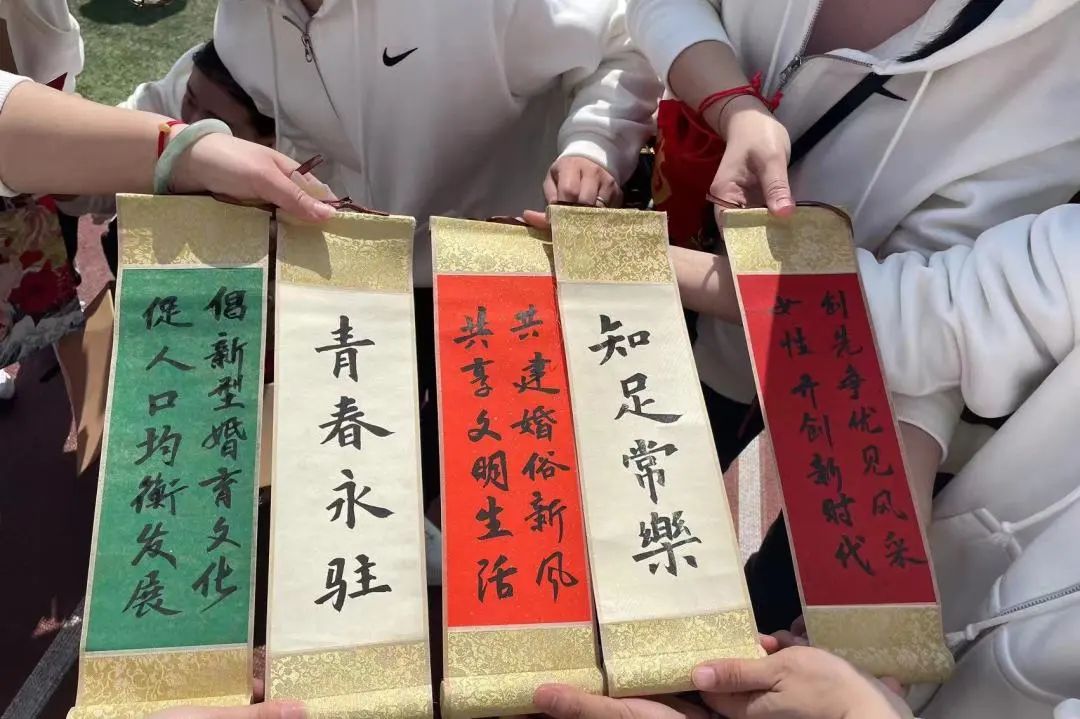 倡新型婚育文化
促人口均衡发展
青春永驻
共建婚俗新风
共享文明生活
知足常樂
创先争优见风采
女性开创新时代